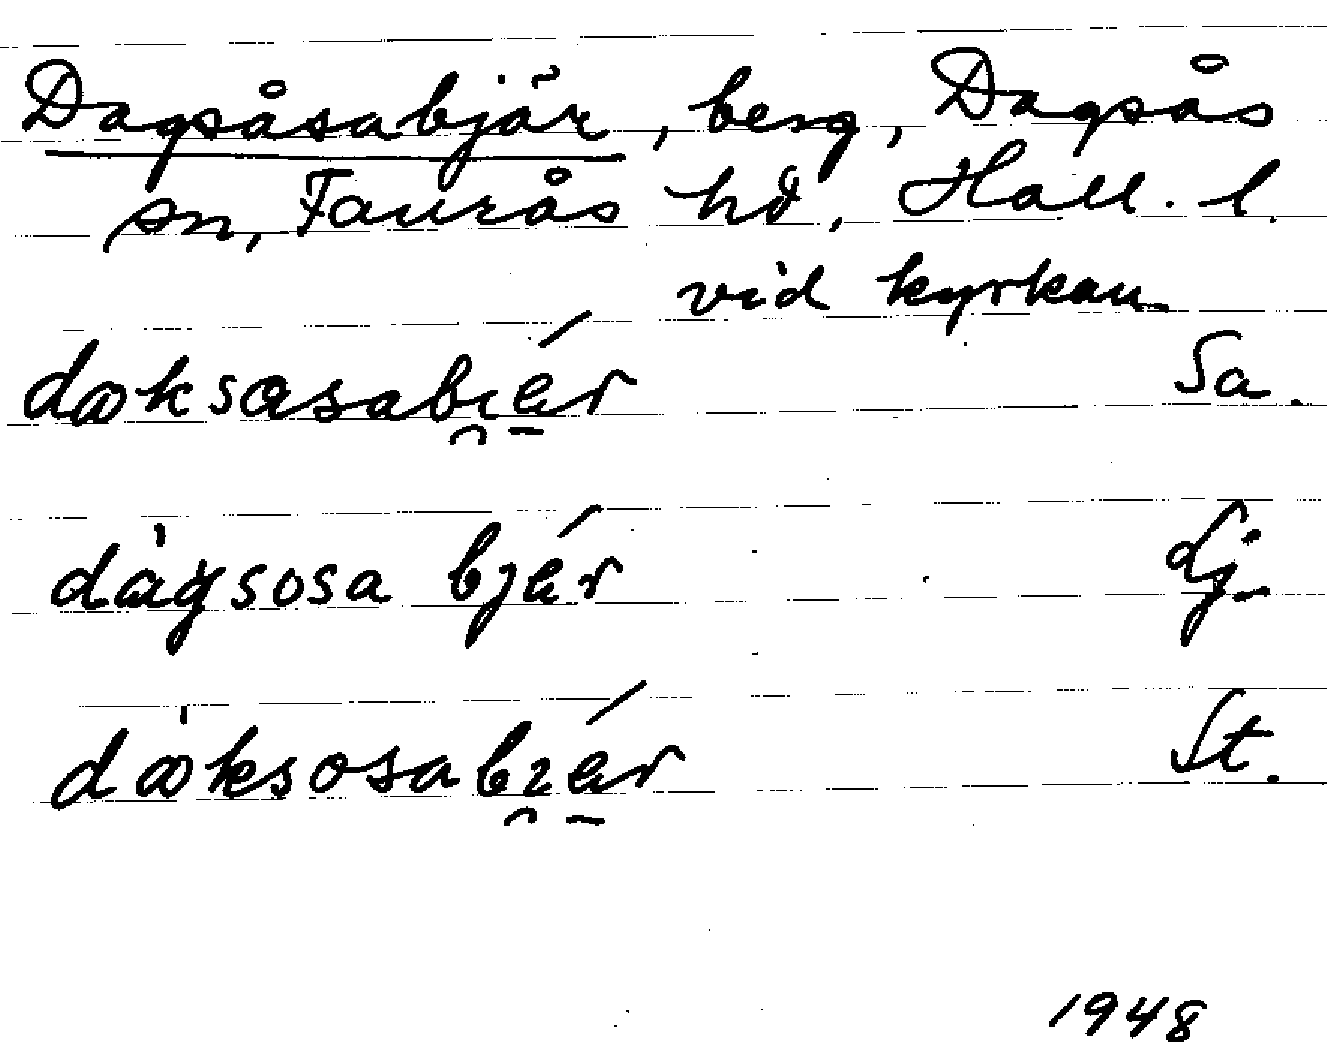 Dagsåsabjär, berg, Dagsås
sn, Faurås hd, Hall. l.
vid kyrkan
dɑksɑsabi̯ér Sa.
dàgsosa bjér Lj.
dɑ̀ksosabi̯ér St.
1948